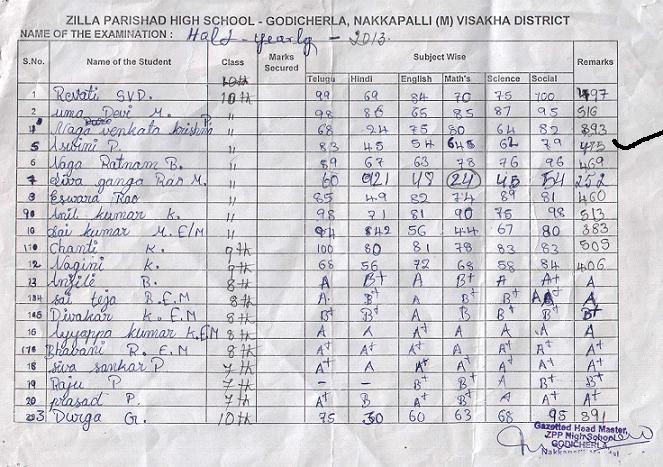 ZILLA PARISHAD HIGH SCHOOL - GODICHERLA, NAKKAPALLI (M) VISAKHA DISTRICT
NAME OF THE EXAMINATION : Half-yearly - 2013.
S.No. Name of the Student Class Marks Secured Subject Wise Remarks
Telugu Hindi English Math's Science Social
1 Revati SVD. 10th 99 69 84 70 75 100 497
2 uma Devi M. " 98 86 65 85 87 95 516
Naga venkata krishna P. " 68 24 75 80 64 82 393
5 Asirini P. " 83 45 54 62 79
6 Naga Ratnam B. " 89 67 63 78 76 96 469
7 Siva ganga Rao M. " 60 48 24 45 54 252
8 Eswara Rao " 85 49 82 74 89 81 460
Anil kumar K. " 98 71 81 90 75 98 513
10 Sai kumar M. E/M " 56 44 67 80 383
Chanti K. 9th 100 80 81 78 83 83 505
12 Nagini K. 9th 68 56 72 68 58 84 406
13 B. 8th A B+ A A A+ A
Sai teja B.E.M 8th A B+ A B+ B+ A
Divakar K. E.M 8th B+ B+ A B+ B+ B+ B+
Ayyappa kumar K.E.M 8th A A A+ A A A
Bhavani R. E.M 8th A+ A+ A A A+ A+ A+
18 Siva sankar P 7th A+ A A+ A+ A+ A+ A+
19 Raju P 7th - - B+ B+ A B+ B+
20 prasad P. 7th A B A A A+ A+
Durga G. 10th 75 30 60 63 68 95 391
Gazetted Head Master,
ZPP High School
GODICHERLA,